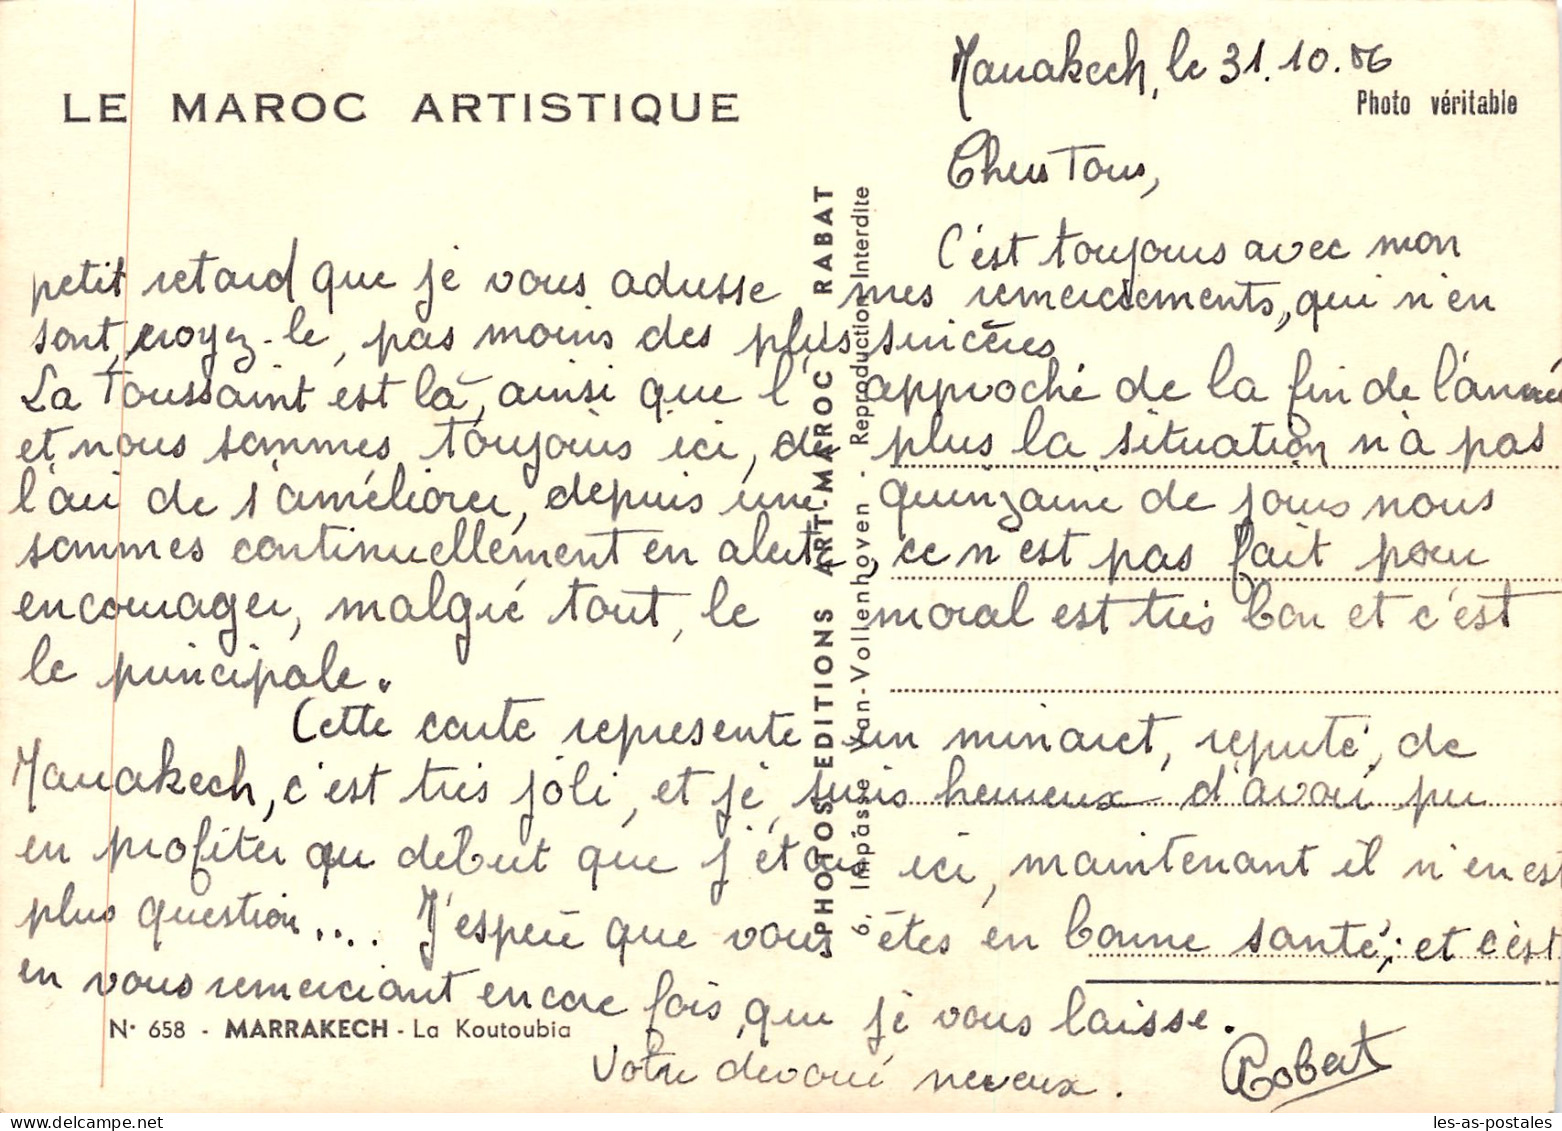 LE MAROC ARTISTIQUE
Marrakech, le 31.10.56
Photo véritable
Chers Tous,
C'est toujours avec mon
petit retard que je vous adresse mes remerciements, qui n'en
sont, croyez-le, pas moins des plus sincères
La Toussaint est là, ainsi que l'approche de la fin de l'année
et nous sommes toujours ici, de plus la situation n'a pas
l'air de s'améliorer, depuis une quinzaine de jours nous
sommes continuellement en alerte, ce n'est pas fait pour
encourager, malgré tout, le moral est très bon et c'est
le principale.
Cette carte represente un minaret, reputé, de
Marrakech, c'est très joli, et je suis heureux d'avoir pu
en profiter au debut que j'étais ici, maintenant il n'en est
plus question.... J'espère que vous êtes en bonne santé; et c'est
en vous remerciant encore fois, que je vous laisse.
Votre devoué neveux.
Robert
N° 658 - MARRAKECH - La Koutoubia
PHOTOS EDITIONS ART-MAROC RABAT
6, Impasse Van-Vollenhoven - Reproduction Interdite
les-as-postales